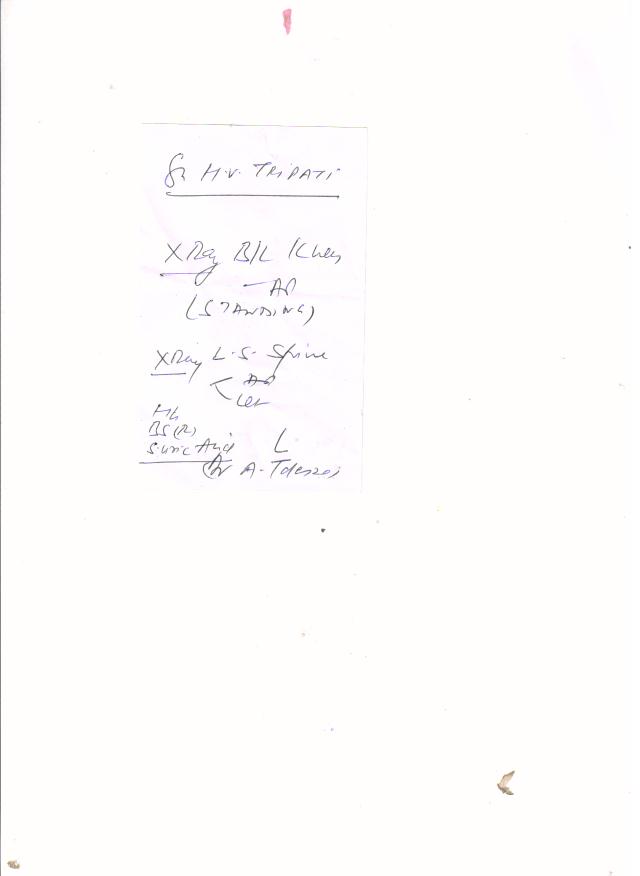 H.V. TRIPATI
X Ray B/L Knees
— AP
(STANDING)
X Ray L.S. Spine
AP
Lat
Hb
BS(R)
S. uric Acid
Dr A.